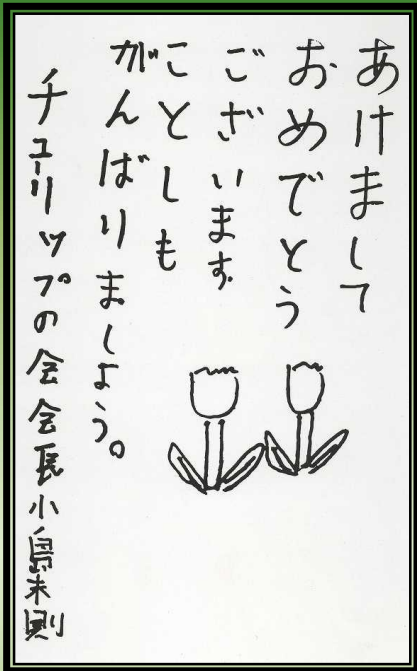 あけまして
おめでとう
ございます
ことしも
がんばりましょう。
チューリップの会会長小島末則